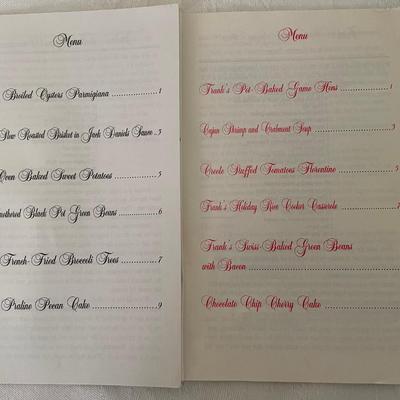 Menu
Broiled Oysters Parmigiana ............... 1
Slow Roasted Brisket in Jack Daniels Sauce .. 3
Oven Baked Sweet Potatoes ............... 5
Smothered Black Pot Green Beans ......... 6
French-Fried Broccoli Trees ............... 7
Praline Pecan Cake ...................... 9
Menu
Frank's Pot-Baked Game Hens ............... 1
Cajun Shrimp and Crabmeat Soup ............... 3
Creole Stuffed Tomatoes Florentine ............... 5
Frank's Holiday Rice Cooker Casserole ............... 7
Frank's Swiss-Baked Green Beans
with Bacon ...............
Chocolate Chip Cherry Cake ...............